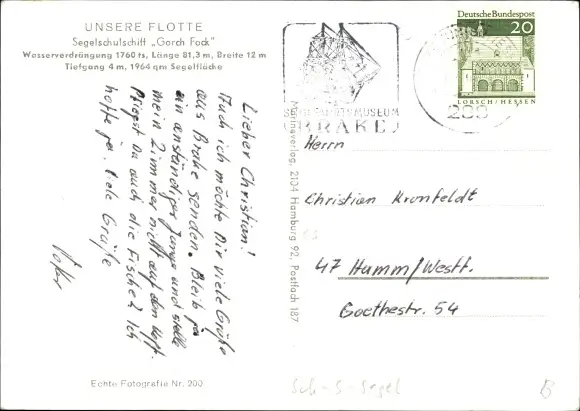 UNSERE FLOTTE
Segelschulschiff „Gorch Fock"
Wasserverdrängung 1760 ts, Länge 81,3 m, Breite 12 m
Tiefgang 4 m, 1964 qm Segelfläche
Lieber Christian!
Auch ich möchte Dir viele Grüße
aus Brake senden. Bleib ja
ein anständiger Junge und stelle
mein Zimmer nicht auf den Kopf.
Pflegst Du auch die Fische? Ich
hoffe ja. Viele Grüße
Echte Fotografie Nr. 200
Marineverlag, 2104 Hamburg 92, Postfach 187
MUSEUM
BRAKE
Deutsche Bundespost
20
LORSCH/HESSEN
Herrn
Christian Kronfeldt
47 Hamm/Westf.
Goethestr. 54
Sch-S-Segel
B